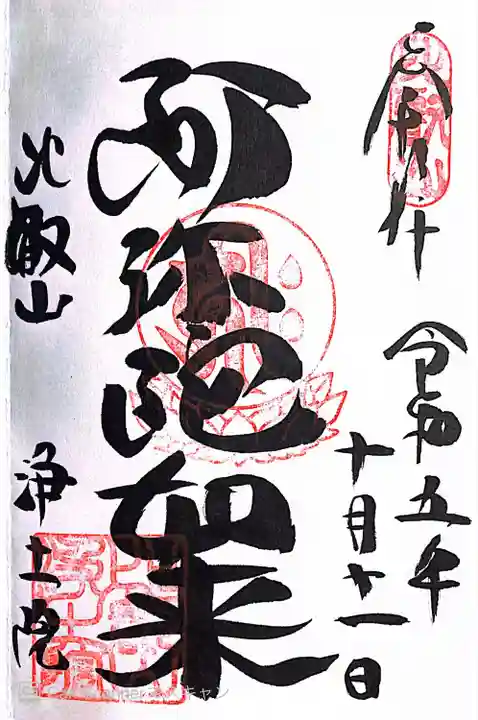 奉拝
令和五年
十月十一日
阿弥陀如来
比叡山 浄土院